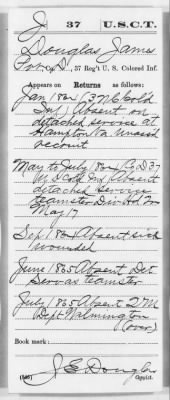 J 37 U.S.C.T.
Douglas, James
Pvt., Co. D, 37 Reg't U. S. Colored Inf.
Appears on Returns as follows:
Jan 1864 (3 N.C. Cold
Inf) Absent on
detached service at
Hampton Va. Unassd
recruit
May to July 1864 Co D 37
U.S. Cold Inf Absent
detached service
teamster Div
May 17
Sep 1864 Absent sick
wounded
June 1865 Absent Det.
Serv as teamster
July 1865 Absent Q M
Dept Wilmington
(over)
Book mark:
J E Dougles
Copyist.